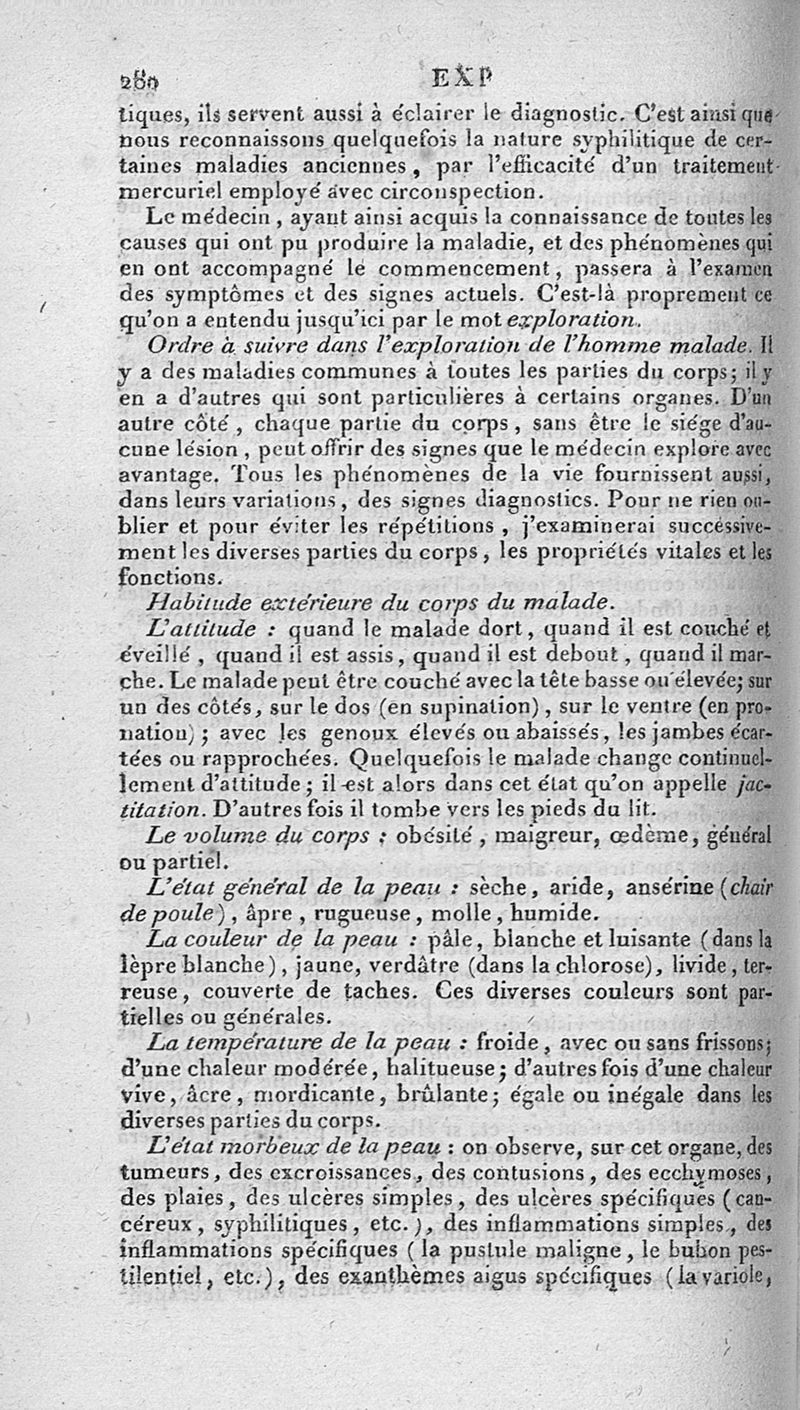 280 EXP
tiques, ils servent aussi à éclairer le diagnostic. C'est ainsi que
nous reconnaissons quelquefois la nature syphilitique de cer-
taines maladies anciennes, par l'efficacité d'un traitement
mercuriel employé avec circonspection.
Le médecin, ayant ainsi acquis la connaissance de toutes les
causes qui ont pu produire la maladie, et des phénomènes qui
en ont accompagné le commencement, passera à l'examen
des symptômes et des signes actuels. C'est-là proprement ce
qu'on a entendu jusqu'ici par le mot exploration.
Ordre à suivre dans l'exploration de l'homme malade. Il
y a des maladies communes à toutes les parties du corps; il y
en a d'autres qui sont particulières à certains organes. D'un
autre côté, chaque partie du corps, sans être le siége d'au-
cune lésion, peut offrir des signes que le médecin explore avec
avantage. Tous les phénomènes de la vie fournissent aussi,
dans leurs variations, des signes diagnostics. Pour ne rien ou-
blier et pour éviter les répétitions, j'examinerai successive-
ment les diverses parties du corps, les propriétés vitales et les
fonctions.
Habitude extérieure du corps du malade.
L'attitude : quand le malade dort, quand il est couché et
éveillé, quand il est assis, quand il est debout, quand il mar-
che. Le malade peut être couché avec la tête basse ou élevée; sur
un des côtés, sur le dos (en supination), sur le ventre (en pro-
nation); avec les genoux élevés ou abaissés, les jambes écar-
tées ou rapprochées. Quelquefois le malade change continuel-
lement d'attitude; il est alors dans cet état qu'on appelle jac-
titation. D'autres fois il tombe vers les pieds du lit.
Le volume du corps : obésité, maigreur, œdème, général
ou partiel.
L'état général de la peau : sèche, aride, ansérine (chair
de poule), âpre, rugueuse, molle, humide.
La couleur de la peau : pâle, blanche et luisante (dans la
lèpre blanche), jaune, verdâtre (dans la chlorose), livide, ter-
reuse, couverte de taches. Ces diverses couleurs sont par-
tielles ou générales.
La température de la peau : froide, avec ou sans frissons;
d'une chaleur modérée, halitueuse; d'autres fois d'une chaleur
vive, âcre, mordicante, brûlante; égale ou inégale dans les
diverses parties du corps.
L'état morbeux de la peau : on observe, sur cet organe, des
tumeurs, des excroissances, des contusions, des ecchymoses,
des plaies, des ulcères simples, des ulcères spécifiques (can-
céreux, syphilitiques, etc.), des inflammations simples, des
inflammations spécifiques (la pustule maligne, le bubon pes-
tilentiel, etc.), des exanthèmes aigus spécifiques (la variole,